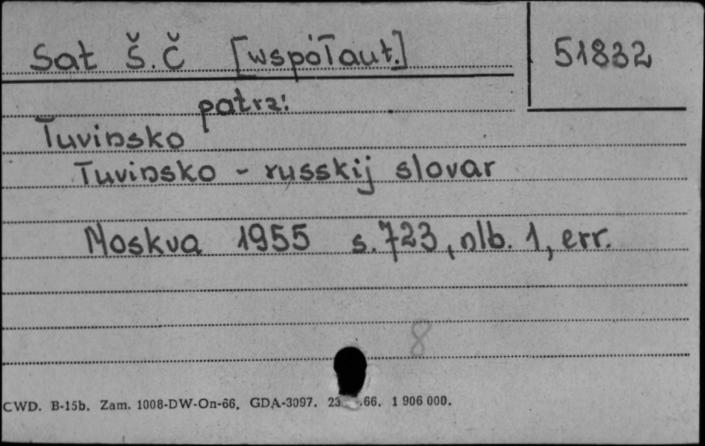 Sat Š.Č [współaut.] 51832
patrz:
Tuvinsko
Tuvinsko - russkij slovar
Moskva 1955 s. 723, nlb. 1, err.
8
CWD. B-15b. Zam. 1008-DW-On-66. GDA-3097. 23 .66. 1 906 000.